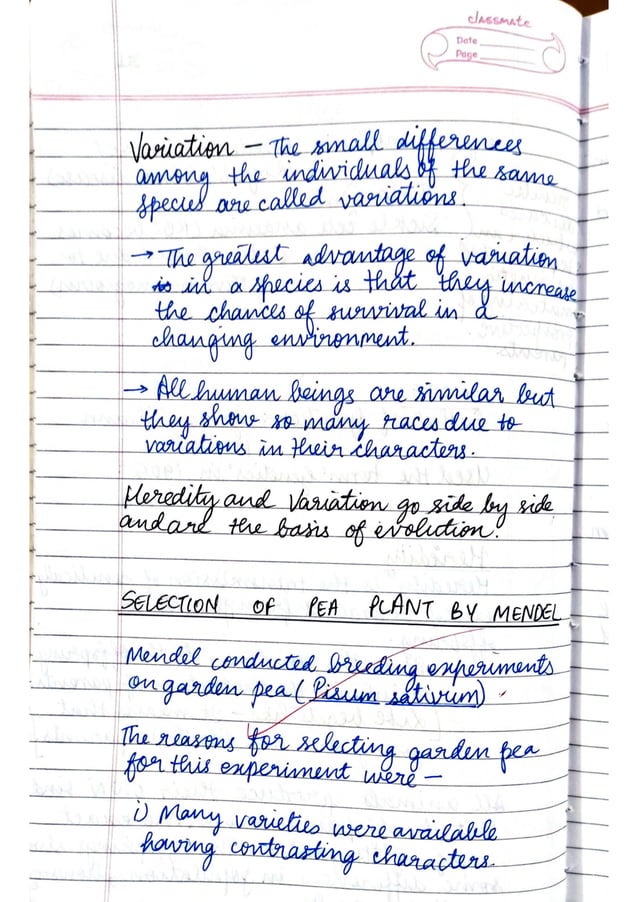 classmate
Date
Page
Variation – The small differences
among the individuals of the same
species are called variations.
→ The greatest advantage of variation
in a species is that they increase
the chances of survival in a
changing environment.
→ All human beings are similar but
they show so many races due to
variations in their characters.
Heredity and Variation go side by side
and are the basis of evolution.
SELECTION OF PEA PLANT BY MENDEL
Mendel conducted breeding experiments
on garden pea (Pisum sativum)
The reasons for selecting garden pea
for this experiment were –
i) Many varieties were available
having contrasting characters.